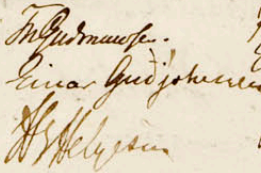 Th Gudmundsen.
Einar Guðjohnsen
H G Helgesen